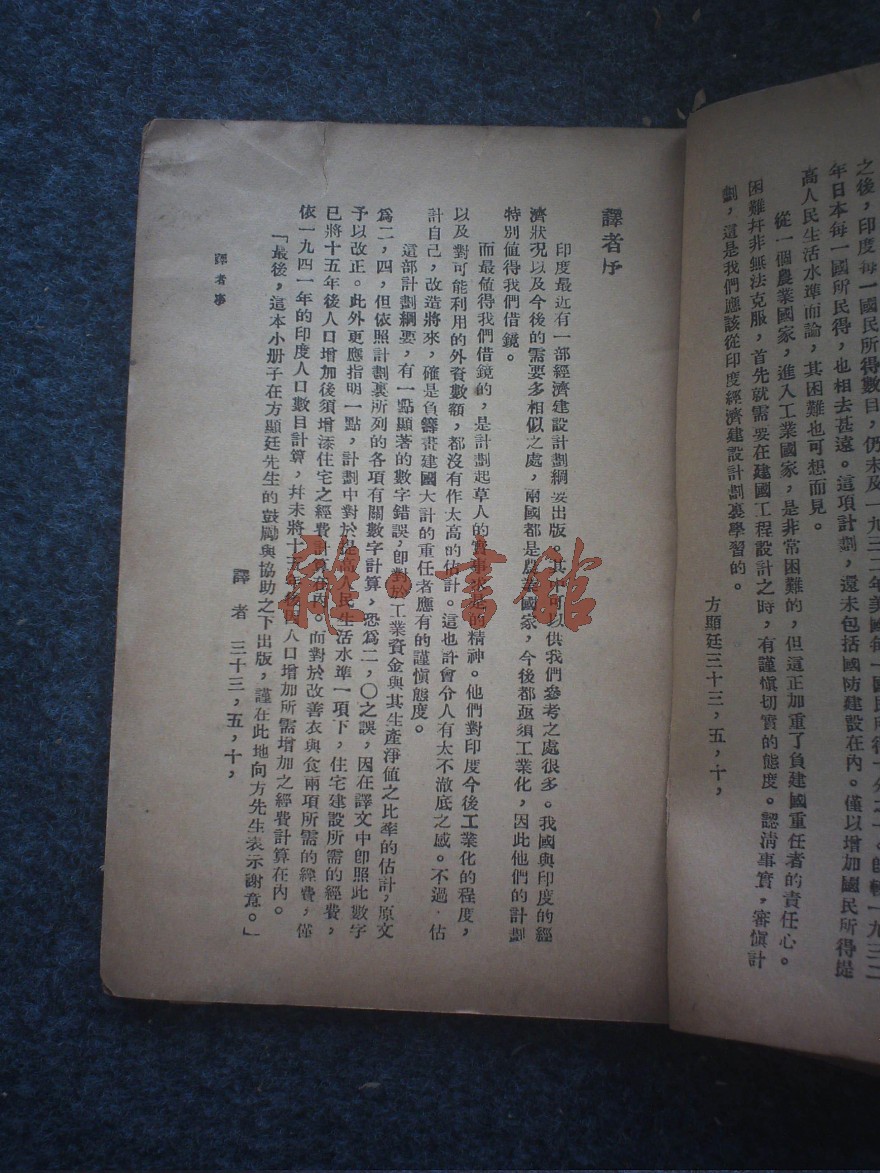 之後，印度每一國民所得數目，仍未及一九三二年美國每一國民所得
年日本每一國所民得，也相去甚遠。這項計劃，還未包括國防建設在內。僅以增加國民所得提
高人民生活水準而論，其困難也可想而見。
從一個農業國家，進入工業國家，是非常困難的，但這正加重了負建國重任者的責任心。
困難幷非無法克服，首先就需要在建國工程設計之時，有謹愼切實的態度。認清事實，審愼計
劃，這是我們應該從印度經濟建設計劃裏學習的。
方顯廷三十三，五，十，
譯者序
印度最近有一部經濟建設計劃綱要出版，其中可以供我們參考之處很多。我國與印度的經
濟狀況以及今後的需要多相似之處，兩國都是農業國家，今後都亟須工業化，因此他們的計劃
特別值得我們借鏡。
而最値得我們借鏡的，是計劃起草人的實事求是的精神。他們對印度今後工業化的程度，
以及對可能利用的外資數額，都沒有作太高的估計。這也許會令人有太不澈底之感。不過，估
計自己，改造將來，確是負籌畫建國大計的重任者應有的謹愼態度。
這部計劃綱要，有一點顯著的數字錯誤，卽對於工業資金與其生產淨值之比率的估計，原文
爲二，四，但依照計劃裏所列的各項有關數字計算，恐爲二，〇之誤，因在譯文中卽照此數字
予以改正。此外更應指明一點，計劃中對於提高人民生活水準一項下，住宅建設所需的經費，
已將十五年後人口增加後須增添住宅之經費計算在內。而對於改善衣與食兩項所需的經費，僅
依一九四一年的印度人口數目計算，幷未將十五年後因人口增加所需增加之經費計算在內。
「最後，這本小册子在方顯廷先生的鼓勵與協助之下出版，謹在此地向方先生表示謝意。」
譯者 三十三，五，十，
譯者事
雅·書館